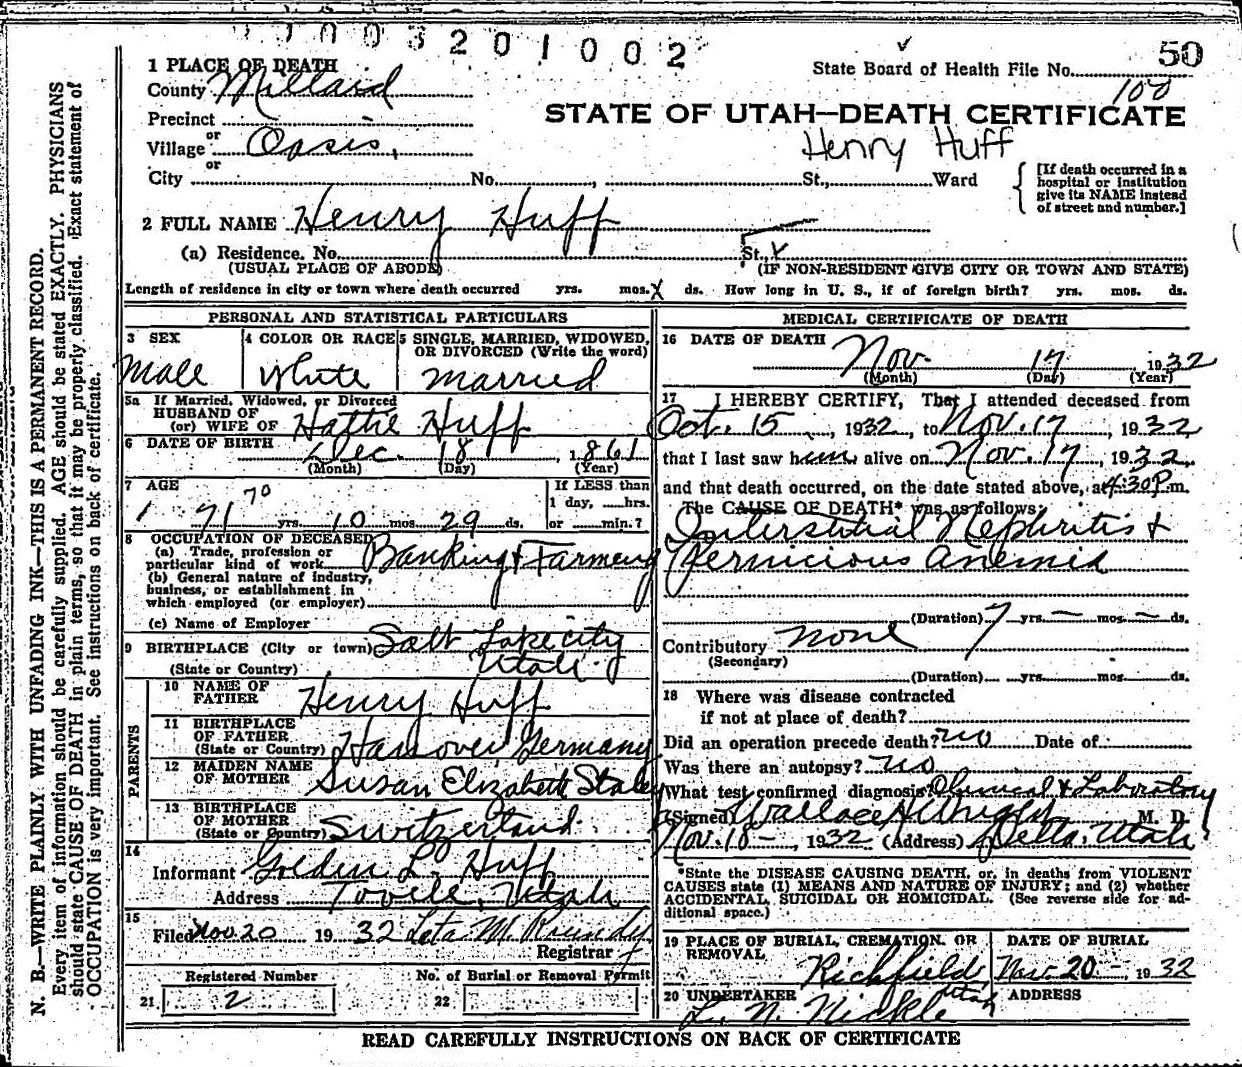 1003201002
50
State Board of Health File No.
100
1 PLACE OF DEATH
County Millard
STATE OF UTAH—DEATH CERTIFICATE
Precinct
or
Village Oasis,
or
Henry Huff
City No. , St., Ward
[If death occurred in a
hospital or institution
give its NAME instead
of street and number.]
2 FULL NAME Henry Huff
(a) Residence. No. St.,
(USUAL PLACE OF ABODE)
(IF NON-RESIDENT GIVE CITY OR TOWN AND STATE)
Length of residence in city or town where death occurred yrs. mos. X ds. How long in U. S., if of foreign birth? yrs. mos. ds.
PERSONAL AND STATISTICAL PARTICULARS
3 SEX
Male
4 COLOR OR RACE
White
5 SINGLE, MARRIED, WIDOWED,
OR DIVORCED (Write the word)
married
5a If Married, Widowed, or Divorced
HUSBAND OF
(or) WIFE OF Hattie Huff
6 DATE OF BIRTH Dec. 18 1861
(Month) (Day) (Year)
7 AGE
70
71 yrs. 10 mos. 29 ds.
If LESS than
1 day, hrs.
or min.?
8 OCCUPATION OF DECEASED
(a) Trade, profession or
particular kind of work Banking & Farming
(b) General nature of industry,
business, or establishment in
which employed (or employer)
(c) Name of Employer
9 BIRTHPLACE (City or town) Salt Lake city
(State or Country) Utah
PARENTS
10 NAME OF
FATHER Henry Huff
11 BIRTHPLACE
OF FATHER
(State or Country) Hanover, Germany
12 MAIDEN NAME
OF MOTHER Susan Elizabeth Staley
13 BIRTHPLACE
OF MOTHER
(State or Country) Switzerland
14
Informant Golden L. Huff
Address Tooele, Utah
15
Filed Nov 20 1932 Leta M. Roundy
Registrar
Registered Number
21 2
No. of Burial or Removal Permit
22
MEDICAL CERTIFICATE OF DEATH
16 DATE OF DEATH
Nov. 17 1932
(Month) (Day) (Year)
17 I HEREBY CERTIFY, That I attended deceased from
Oct. 15, 1932, to Nov. 17, 1932
that I last saw him alive on Nov. 17, 1932,
and that death occurred, on the date stated above, at 4:30 P.m.
The CAUSE OF DEATH* was as follows:
Interstitial Nephritis &
Pernicious Anemia
(Duration) 7 yrs. — mos. — ds.
Contributory none
(Secondary)
(Duration) yrs. mos. ds.
18 Where was disease contracted
if not at place of death?
Did an operation precede death? no Date of
Was there an autopsy? no
What test confirmed diagnosis? Clinical & Laboratory
(Signed) Wallace M. D.
Nov. 18 -, 1932 (Address) Delta, Utah
*State the DISEASE CAUSING DEATH, or, in deaths from VIOLENT
CAUSES state (1) MEANS AND NATURE OF INJURY; and (2) whether
ACCIDENTAL, SUICIDAL OR HOMICIDAL. (See reverse side for ad-
ditional space.)
19 PLACE OF BURIAL, CREMATION, OR
REMOVAL
Richfield, Utah
DATE OF BURIAL
Nov. 20 -, 1932
20 UNDERTAKER
L. N. Nickle
ADDRESS
READ CAREFULLY INSTRUCTIONS ON BACK OF CERTIFICATE
N. B.—WRITE PLAINLY WITH UNFADING INK—THIS IS A PERMANENT RECORD.
Every item of information should be carefully supplied. AGE should be stated EXACTLY. PHYSICIANS
should state CAUSE OF DEATH in plain terms, so that it may be properly classified. Exact statement of
OCCUPATION is very important. See instructions on back of certificate.